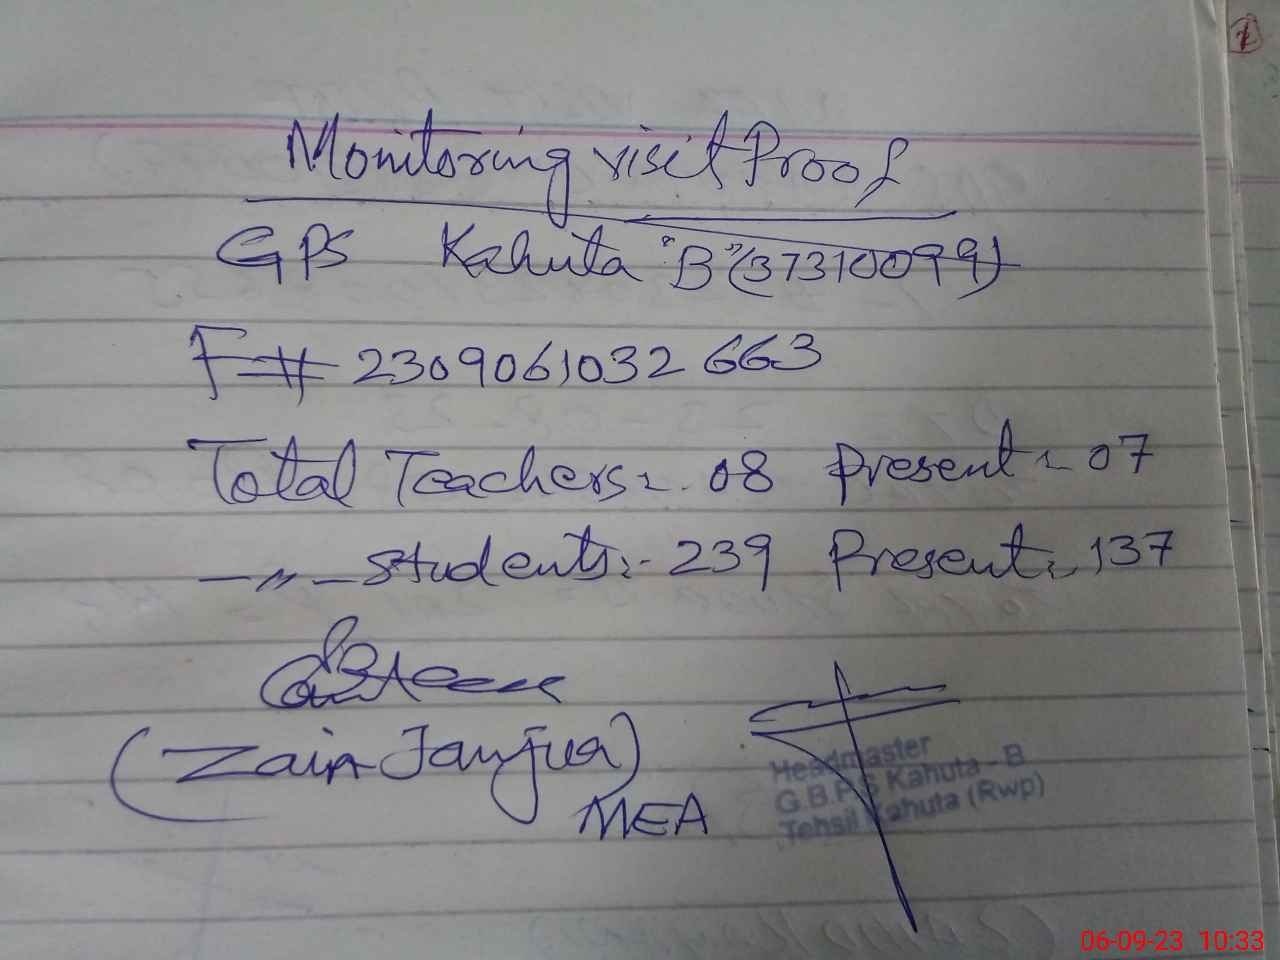 Monitoring visit Proof
GPS Kahuta "B" (37310099)
F# 2309061032663
Total Teachers:- 08 Present:- 07
—〃— Students:- 239 Present:- 137
(Zain Janjua)
MEA
Headmaster
G.B.P.S Kahuta - B
Tehsil Kahuta (Rwp)
06-09-23 10:33